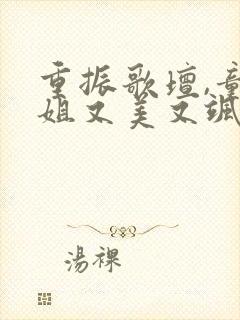 重振歌坛,童
姐又美又飒
汤裸